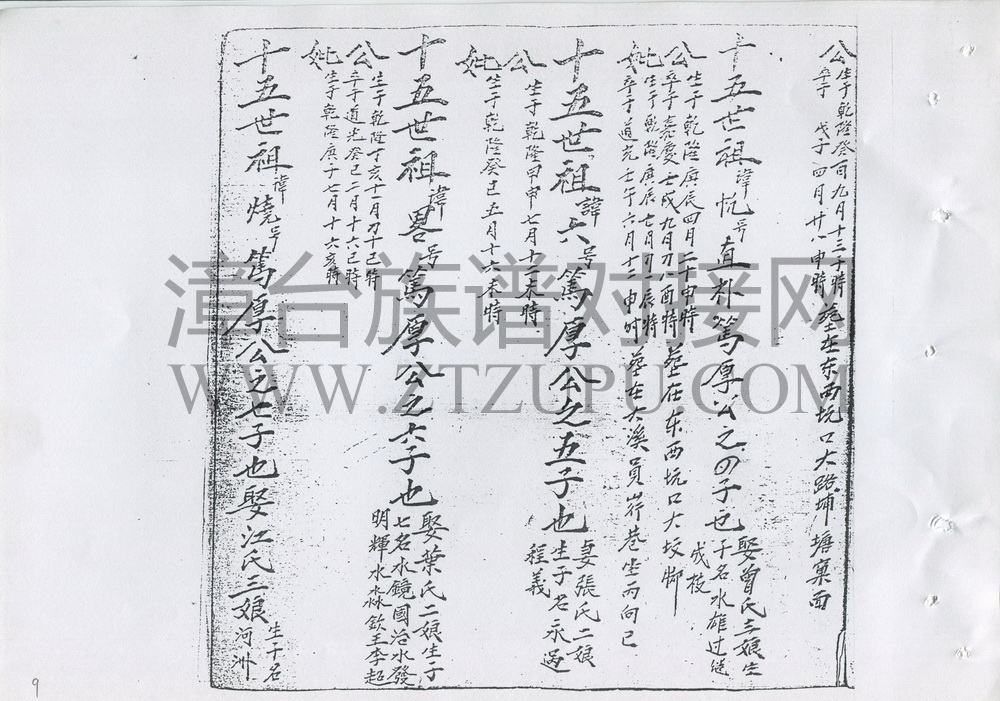 公 生于乾隆癸酉九月十三子時
卒于 戊子四月廿八申時 墓在东西坑口大路埔塘窠面
十五世祖諱忼号直朴篤厚公之四子也 娶曾氏三娘生
子名水雄过继
成枝
公 生于乾隆庚辰四月二十申特
卒于嘉慶壬戍九月初八酉特 墓在东西坑口大坟脚
妣 生于乾隆庚辰七月初八辰特
卒于道光壬午六月十二申时 墓在大溪員 巷坐 向巳
十五世祖諱六号篤厚公之五子也 妻張氏二娘
生子名永
程義
公 生于乾隆甲申七月十二未特
妣 生于乾隆癸巳五月十六未特
十五世祖諱畧号篤厚公之六子也 娶葉氏二娘生子
七名水鏡國治水發
明輝水淼欽王李超
公 生于乾隆丁亥十一月初十巳特
卒于道光癸巳二月十六巳時
妣 生于乾隆庚子七月十六亥時
十五世祖諱燒号篤厚公之七子也娶江氏三娘 生子名
河洲
漳台族谱对接网
WWW.ZTZUPU.COM
9